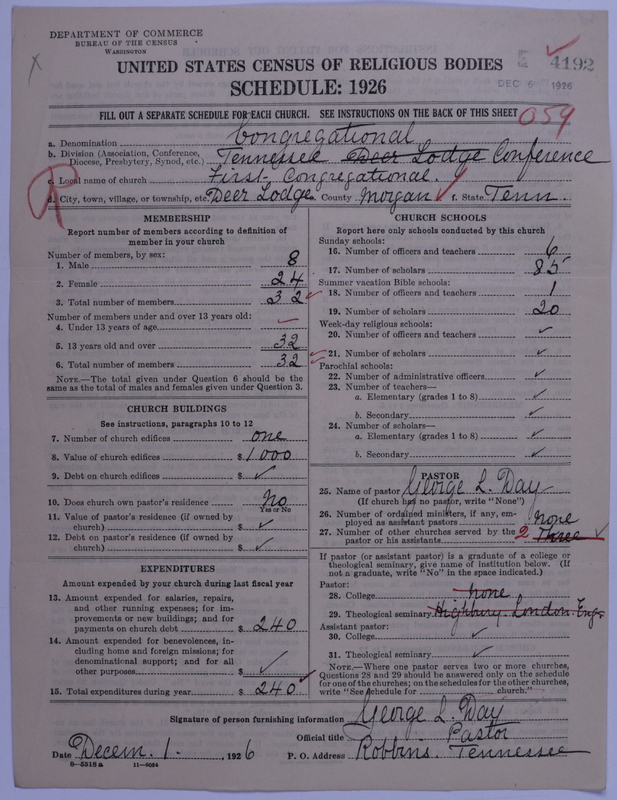 DEPARTMENT OF COMMERCE
BUREAU OF THE CENSUS
WASHINGTON
4192
DEC 6 1926
UNITED STATES CENSUS OF RELIGIOUS BODIES
SCHEDULE: 1926
FILL OUT A SEPARATE SCHEDULE FOR EACH CHURCH. SEE INSTRUCTIONS ON THE BACK OF THIS SHEET
059
a. Denomination Congregational
b. Division (Association, Conference, Diocese, Presbytery, Synod, etc.) Tennessee Deer Lodge Conference
c. Local name of church First Congregational.
d. City, town, village, or township, etc. Deer Lodge e. County Morgan f. State Tenn.
MEMBERSHIP
Report number of members according to definition of
member in your church
Number of members, by sex:
1. Male 8
2. Female 24
3. Total number of members 32
Number of members under and over 13 years old:
4. Under 13 years of age
5. 13 years old and over 32
6. Total number of members 32
NOTE.—The total given under Question 6 should be the
same as the total of males and females given under Question 3.
CHURCH BUILDINGS
See instructions, paragraphs 10 to 12
7. Number of church edifices one
8. Value of church edifices $ 1000
9. Debt on church edifices $ ✓
10. Does church own pastor's residence No
Yes or No
11. Value of pastor's residence (if owned by
church) $ ✓
12. Debt on pastor's residence (if owned by
church) $ ✓
EXPENDITURES
Amount expended by your church during last fiscal year
13. Amount expended for salaries, repairs,
and other running expenses; for im-
provements or new buildings; and for
payments on church debt $ 240
14. Amount expended for benevolences, in-
cluding home and foreign missions; for
denominational support; and for all
other purposes $ ✓
15. Total expenditures during year $ 240
CHURCH SCHOOLS
Report here only schools conducted by this church
Sunday schools:
16. Number of officers and teachers 6
17. Number of scholars 85
Summer vacation Bible schools:
18. Number of officers and teachers 1
19. Number of scholars 20
Week-day religious schools:
20. Number of officers and teachers ✓
21. Number of scholars ✓
Parochial schools:
22. Number of administrative officers ✓
23. Number of teachers—
a. Elementary (grades 1 to 8) ✓
b. Secondary ✓
24. Number of scholars—
a. Elementary (grades 1 to 8) ✓
b. Secondary ✓
PASTOR
25. Name of pastor George L. Day
(If church has no pastor, write "None")
26. Number of ordained ministers, if any, em-
ployed as assistant pastors none
27. Number of other churches served by the
pastor or his assistants 2 Three ✓
If pastor (or assistant pastor) is a graduate of a college or
theological seminary, give name of institution below. (If
not a graduate, write "No" in the space indicated.)
Pastor:
28. College none
29. Theological seminary Highbury. London. Eng.
Assistant pastor:
30. College ✓
31. Theological seminary ✓
NOTE.—Where one pastor serves two or more churches,
Questions 28 and 29 should be answered only on the schedule
for one of the churches; on the schedules for the other churches,
write "See schedule for church."
Signature of person furnishing information George L. Day
Official title Pastor
Date Decem. 1. , 1926 P. O. Address Robbins. Tennessee
8—5318 a 11—9034